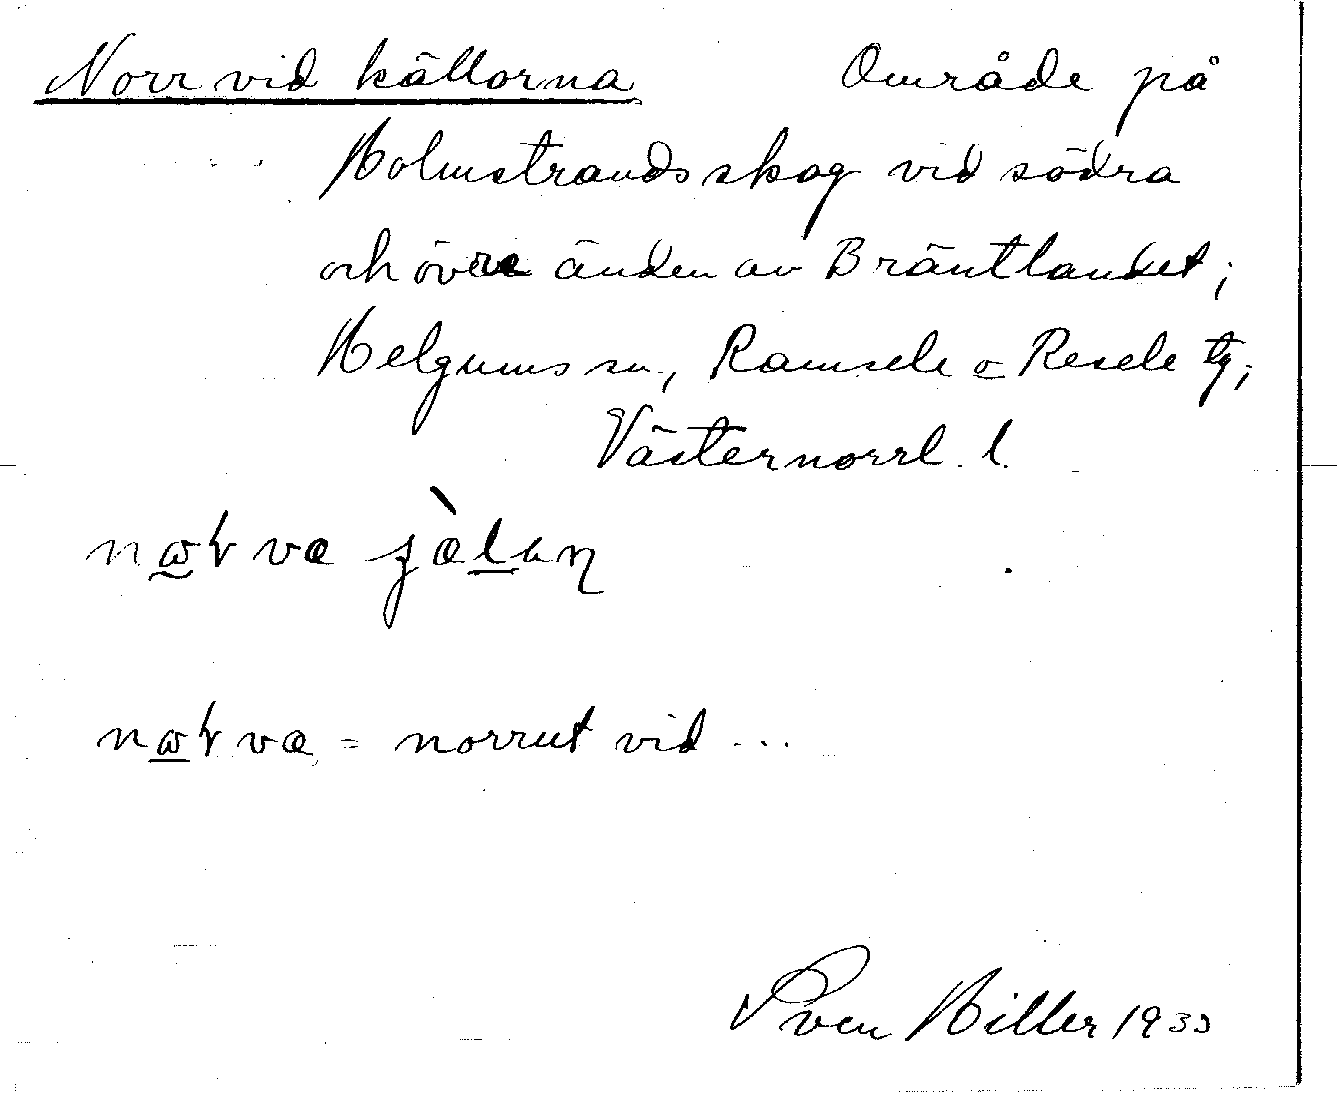 Norr vid källorna Område på
Holmstrands skog vid södra
och övre änden av Bräntlandet;
Helgums sn, Ramsele o Resele tg;
Västernorrl. l.
væ
væ = norrut vid ...
Sven Hiller 1933